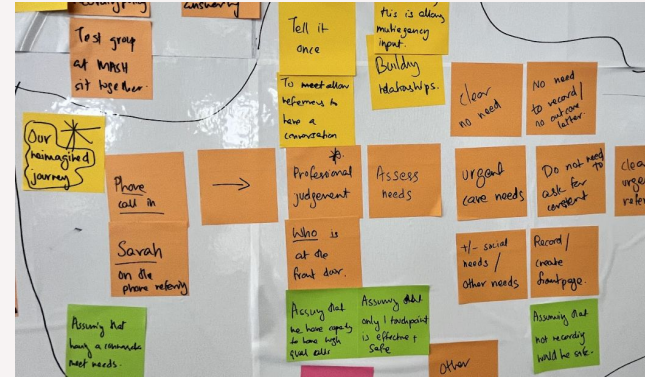 answering
Test group
at MASH
sit together.
Tell it
once
this is allows
multiagency
input.
Building
relationships.
To meet allow
referrers to
have a
conversation
Clear
no need
No need
to record/
no outcome
letter.
Our
reimagined
journey
Phone
call in
→
Professional
judgement
Assess
needs
urgent
care needs
Do not need to
ask for
consent
clea
urge
refer
Sarah
on the
phone referring
Who is
at the
front door.
+/- social
needs /
other needs
Record /
create
frontpage.
Assuming that
having a
meet needs.
Assuming that
we have capacity
to have high
qual calls
Assuming that
only 1 touchpoint
is effective +
safe
Assuming that
not recording
would be safe.
Other